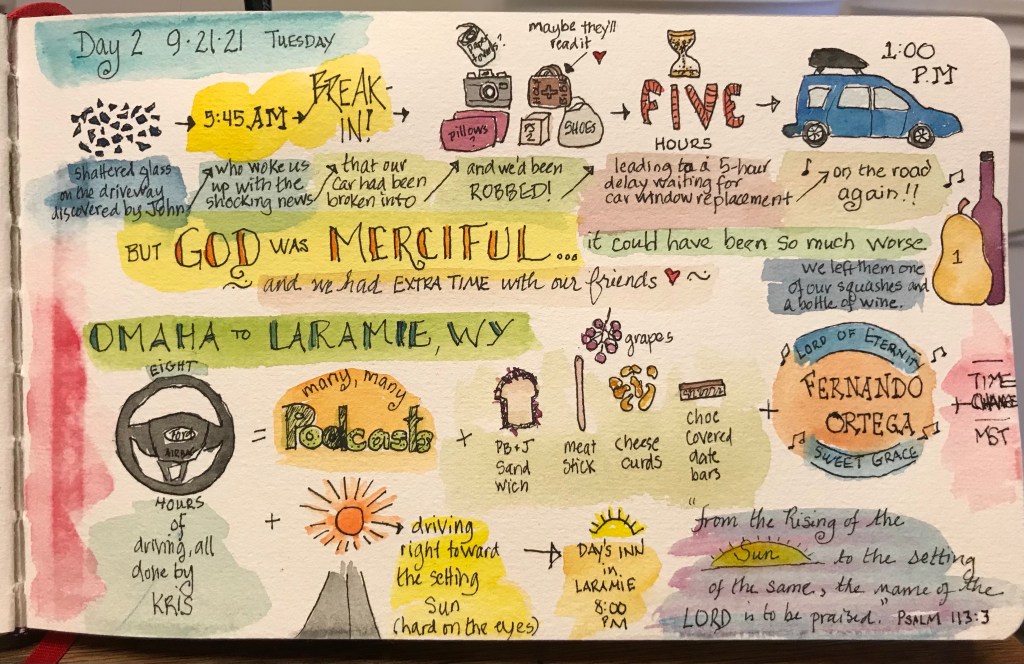 Day 2 9·21·21 TUESDAY
paper towels?
maybe they'll
read it
HOLY
BIBLE
pillows?
PS
2
SHOES
5:45 AM
BREAK-
IN!
FIVE
HOURS
1:00
P.M
shattered glass
on the driveway
discovered by John
who woke us
up with the
shocking news
that our
car had been
broken into
and we'd been
ROBBED!
leading to a 5-hour
delay waiting for
car window replacement
on the road
again!!
BUT GOD WAS MERCIFUL...
it could have been so much worse
~ and we had EXTRA TIME with our friends ~
1
we left them one
of our squashes and
a bottle of wine.
OMAHA TO LARAMIE, WY
EIGHT
Ford
AIRBAG
HOURS
of
driving, all
done by
KRIS
=
many, many
Podcasts
+
grapes
PB+J
Sand
wich
meat
stick
cheese
curds
choc
covered
date
bars
+
LORD OF ETERNITY
FERNANDO
ORTEGA
SWEET GRACE
+
TIME
CHANGE
MST
+
driving
right toward
the setting
Sun
(hard on the eyes)
DAY'S INN
in
LARAMIE
8:00
PM
"from the Rising of the
Sun to the setting
of the same, the name of the
LORD is to be praised." PSALM 113:3